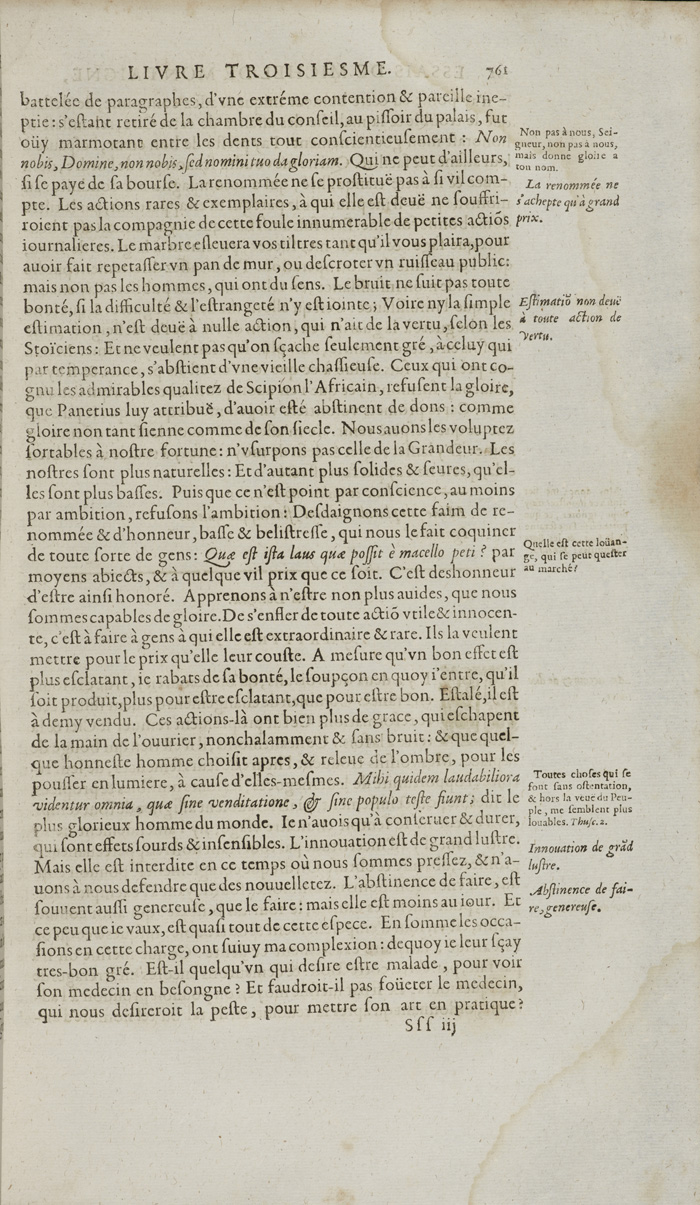 LIVRE TROISIESME. 761
battelée de paragraphes, d'vne extréme contention & pareille ine-
ptie: s'eſtant retiré de la chambre du conſeil, au piſſoir du palais, fut
oüy marmotant entre les dents tout conſcientieuſement : Non
nobis, Domine, non nobis, ſed nomini tuo da gloriam. Qui ne peut d'ailleurs,
ſi ſe paye de ſa bourſe. La renommée ne ſe proſtituë pas à ſi vil com-
pte. Les actions rares & exemplaires, à qui elle eſt deuë ne ſouffri-
roient pas la compagnie de cette foule innumerable de petites actiõs
iournalieres. Le marbre eſleuera vos tiltres tant qu'il vous plaira, pour
auoir fait repetaſſer vn pan de mur, ou deſcroter vn ruiſſeau public:
mais non pas les hommes, qui ont du ſens. Le bruit ne ſuit pas toute
bonté, ſi la difficulté & l'eſtrangeté n'y eſt iointe; Voire ny la ſimple
eſtimation, n'eſt deuë à nulle action, qui n'ait de la vertu, ſelon les
Stoïciens: Et ne veulent pas qu'on ſçache ſeulement gré, à celuy qui
par temperance, s'abſtient d'vne vieille chaſſieuſe. Ceux qui ont co-
gnu les admirables qualitez de Scipion l'Africain, refuſent la gloire,
que Panetius luy attribuë, d'auoir eſté abſtinent de dons : comme
gloire non tant ſienne comme de ſon ſiecle. Nous auons les voluptez
ſortables à noſtre fortune: n'vſurpons pas celle de la Grandeur. Les
noſtres ſont plus naturelles: Et d'autant plus ſolides & ſeures, qu'el-
les ſont plus baſſes. Puis que ce n'eſt point par conſcience, au moins
par ambition, refuſons l'ambition: Deſdaignons cette faim de re-
nommée & d'honneur, baſſe & beliſtreſſe, qui nous le fait coquiner
de toute ſorte de gens: Quæ eſt iſta laus quæ poſſit è macello peti ? par
moyens abiects, & à quelque vil prix que ce ſoit. C'eſt deshonneur
d'eſtre ainſi honoré. Apprenons à n'eſtre non plus auides, que nous
ſommes capables de gloire. De s'enfler de toute actiõ vtile & innocen-
te, c'eſt à faire à gens à qui elle eſt extraordinaire & rare. Ils la veulent
mettre pour le prix qu'elle leur couſte. A meſure qu'vn bon effet eſt
plus eſclatant, ie rabats de ſa bonté, le ſoupçon en quoy i'entre, qu'il
ſoit produit, plus pour eſtre eſclatant, que pour eſtre bon. Eſtalé, il eſt
à demy vendu. Ces actions-là ont bien plus de grace, qui eſchapent
de la main de l'ouurier, nonchalamment & ſans bruit: & que quel-
que honneſte homme choiſit apres, & releue de l'ombre, pour les
pouſſer en lumiere, à cauſe d'elles-meſmes. Mihi quidem laudabiliora
videntur omnia, quæ ſine venditatione, & ſine populo teſte fiunt; dit le
plus glorieux homme du monde. Ie n'auois qu'à conſeruer & durer,
qui ſont effets ſourds & inſenſibles. L'innouation eſt de grand luſtre.
Mais elle eſt interdite en ce temps où nous ſommes preſſez, & n'a-
uons à nous defendre que des nouuelletez. L'abſtinence de faire, eſt
ſouuent auſſi genereuſe, que le faire: mais elle eſt moins au iour. Et
ce peu que ie vaux, eſt quaſi tout de cette eſpece. En ſomme les occa-
ſions en cette charge, ont ſuiuy ma complexion: dequoy ie leur ſçay
tres-bon gré. Eſt-il quelqu'vn qui deſire eſtre malade, pour voir
ſon medecin en beſongne ? Et faudroit-il pas foüeter le medecin,
qui nous deſireroit la peſte, pour mettre ſon art en pratique?
Sſſ iij
Non pas à nous, Sei-
gneur, non pas à nous,
mais donne gloire a
ton nom.
La renommée ne
s'achepte qu'à grand
prix.
Eſtimatiõ non deuë
à toute action de
vertu.
Quelle eſt cette loüan-
ge, qui ſe peut queſter
au marché?
Toutes choſes qui ſe
font ſans oſtentation,
& hors la veuë du Peu-
ple, me ſemblent plus
loüables. Thuſc. 2.
Innouation de grãd
luſtre.
Abſtinence de fai-
re, genereuſe.